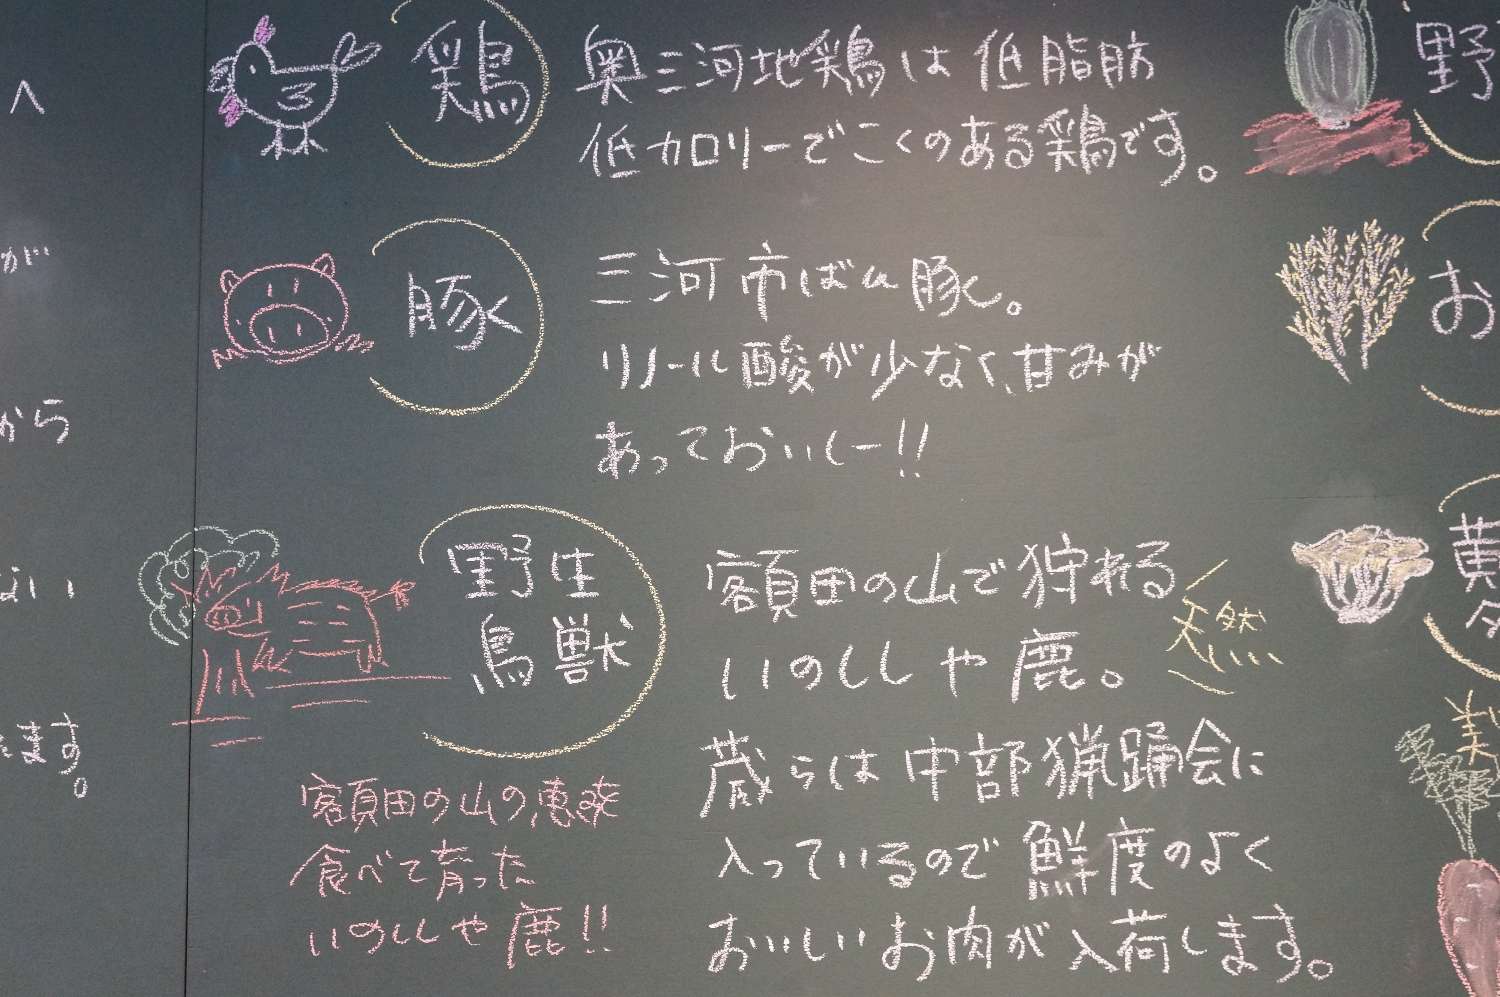 へ
が…
から
ない
ます。
鶏
奥三河地鶏は低脂肪
低カロリーでこくのある鶏です。
豚
三河市ばん豚。
リノール酸が少なく、甘みが
あっておいしー!!
野生
鳥獣
額田の山で狩れる
いのしし や 鹿。
天然
蔵らは中部猟踊会に
入っているので鮮度のよく
おいしいお肉が入荷します。
額田の山の恵
食べて育った
いのししや鹿!!
野
お
黄
美